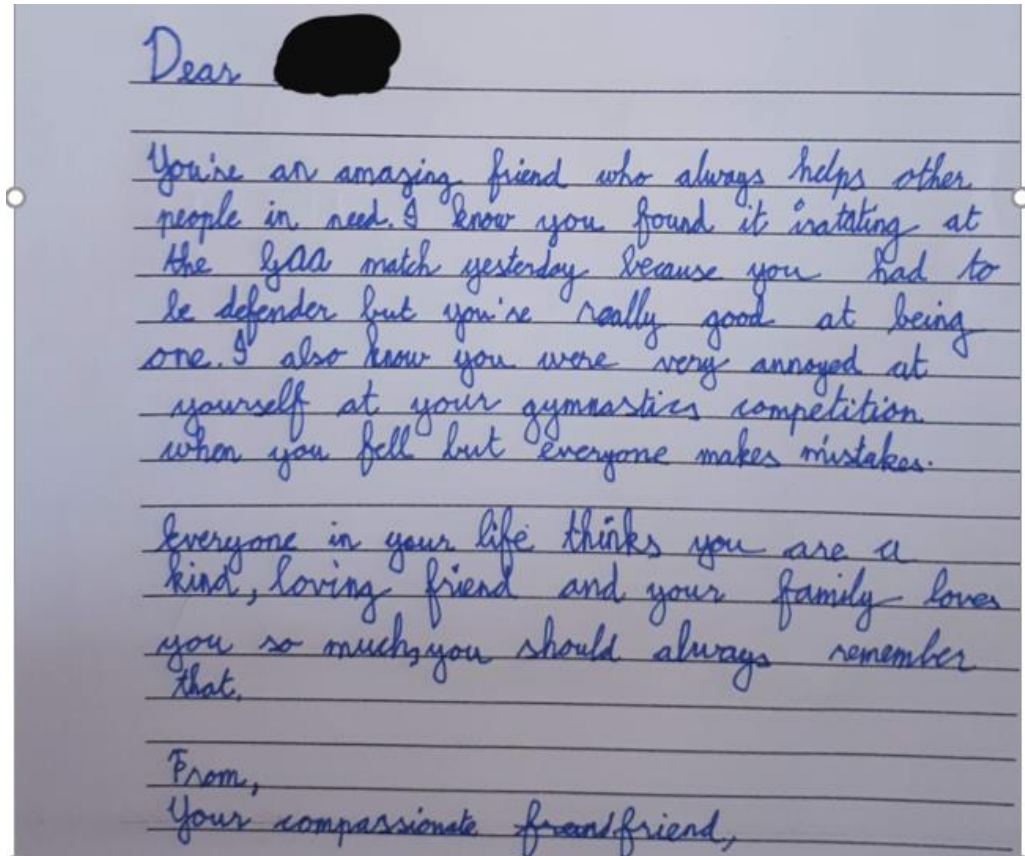 Dear
You're an amazing friend who always helps other
people in need. I know you found it iratating at
the Gaa match yesterday because you had to
be defender but you're really good at being
one. I also know you were very annoyed at
yourself at your gymnastics competition
when you fell but everyone makes mistakes.
Everyone in your life thinks you are a
kind, loving friend and your family loves
you so much, you should always remember
that.
From,
Your compassionate friend,